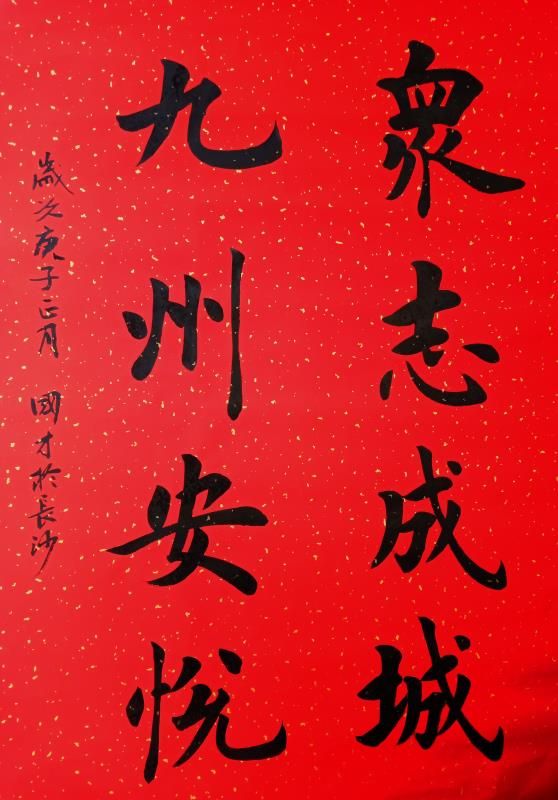 衆志成城
九州安悦
歲次庚子正月 國才於長沙